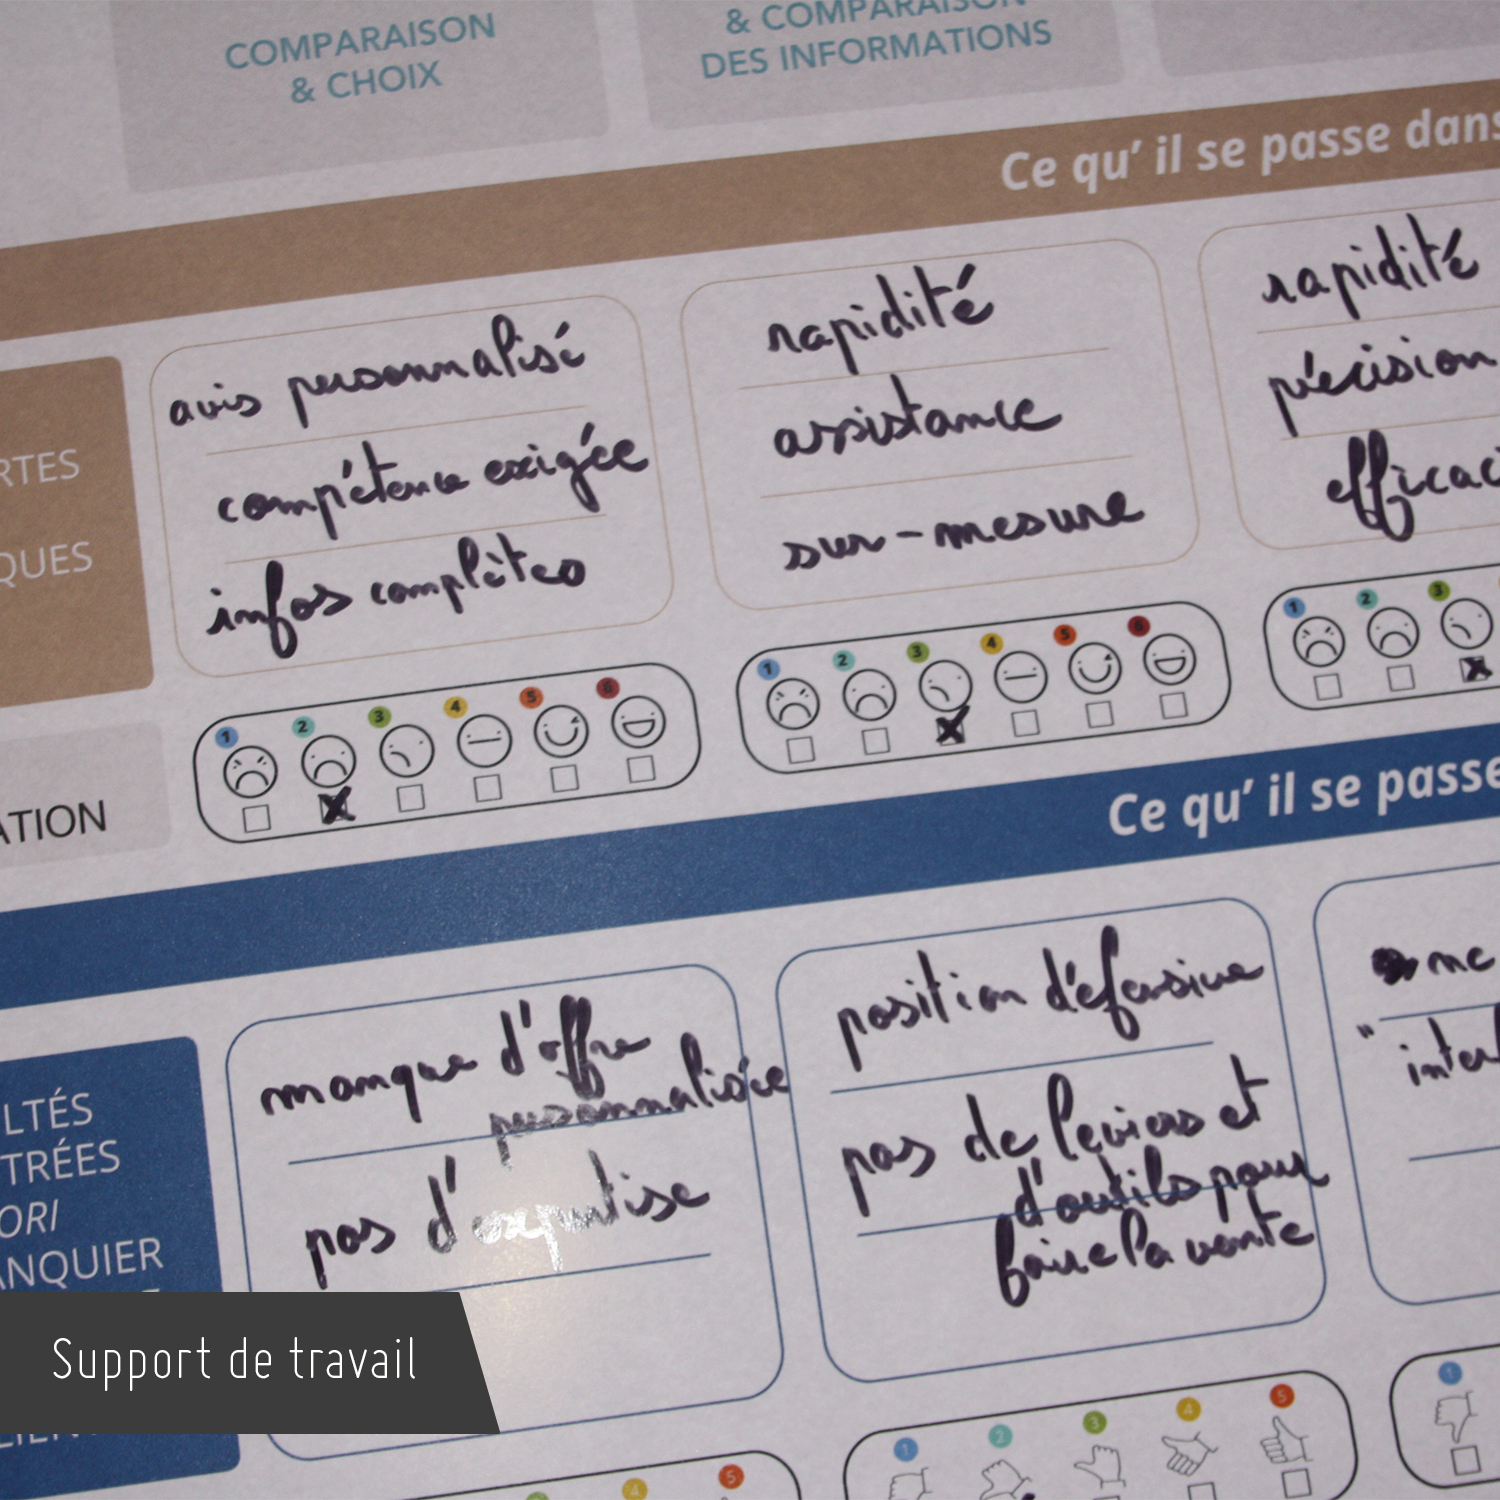 COMPARAISON
& CHOIX
& COMPARAISON
DES INFORMATIONS
Ce qu' il se passe dans
RTES
QUES
avis personnalisé
compétence exigée
infos complètes
rapidité
assistance
sur-mesure
rapidité
précision
efficaci
ATION
1 2 3 4 5 6
1 2 3 4 5 6
1 2 3
Ce qu' il se passe
LTÉS
TRÉES
ORI
ANQUIER
manque d'offre
personnalisée
pas d'expertise
position défensive
pas de leviers et
d'outils pour
faire la vente
me
" inter
4 5
1 2 3 4 5
1
Support de travail